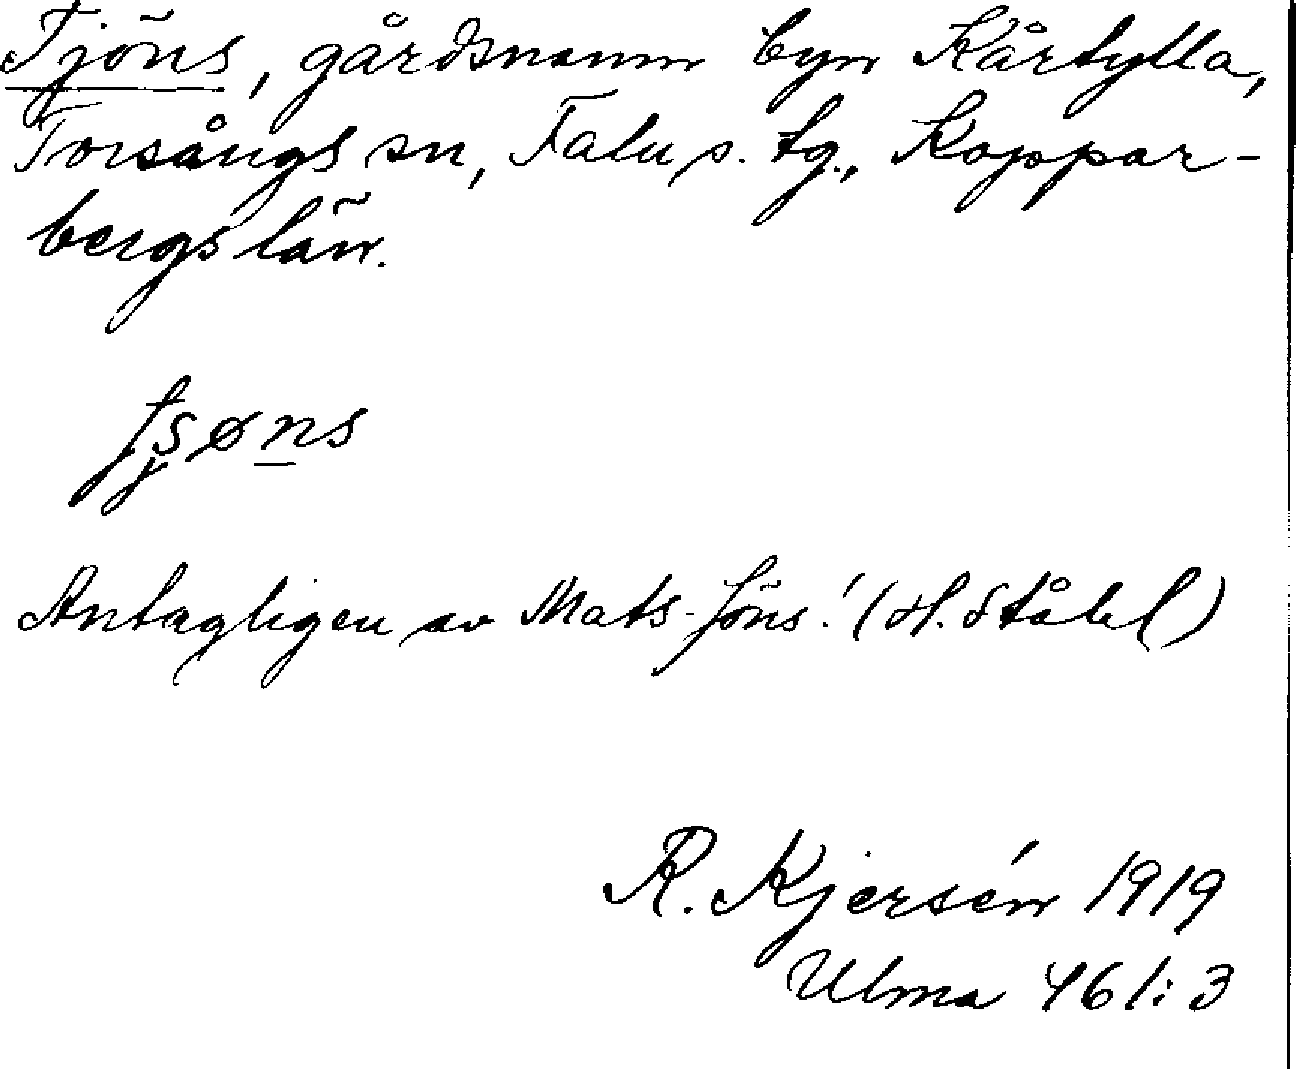 Tjöns, gårdsnamn byn Kårtylla,
Torsångs sn, Falu s. tg., Koppar-
bergs län.
Antagligen av Mats-Jöns! (H. Ståhl)
R. Kjersén 1919
Ulma 461:3